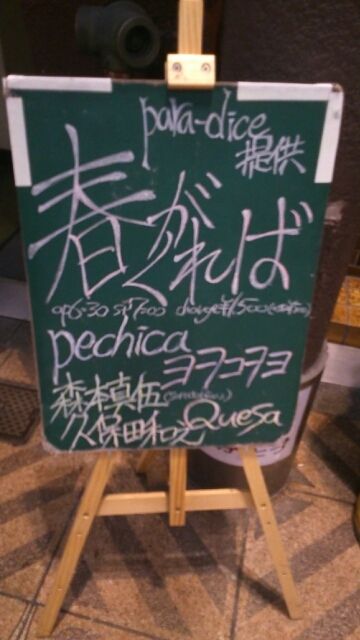 para-dice
提供
春がくれば
op6:30 st7:00 charge¥1,500
pechica
ヨヲコヲヨ
森本真伍
久保田和元 Quesa